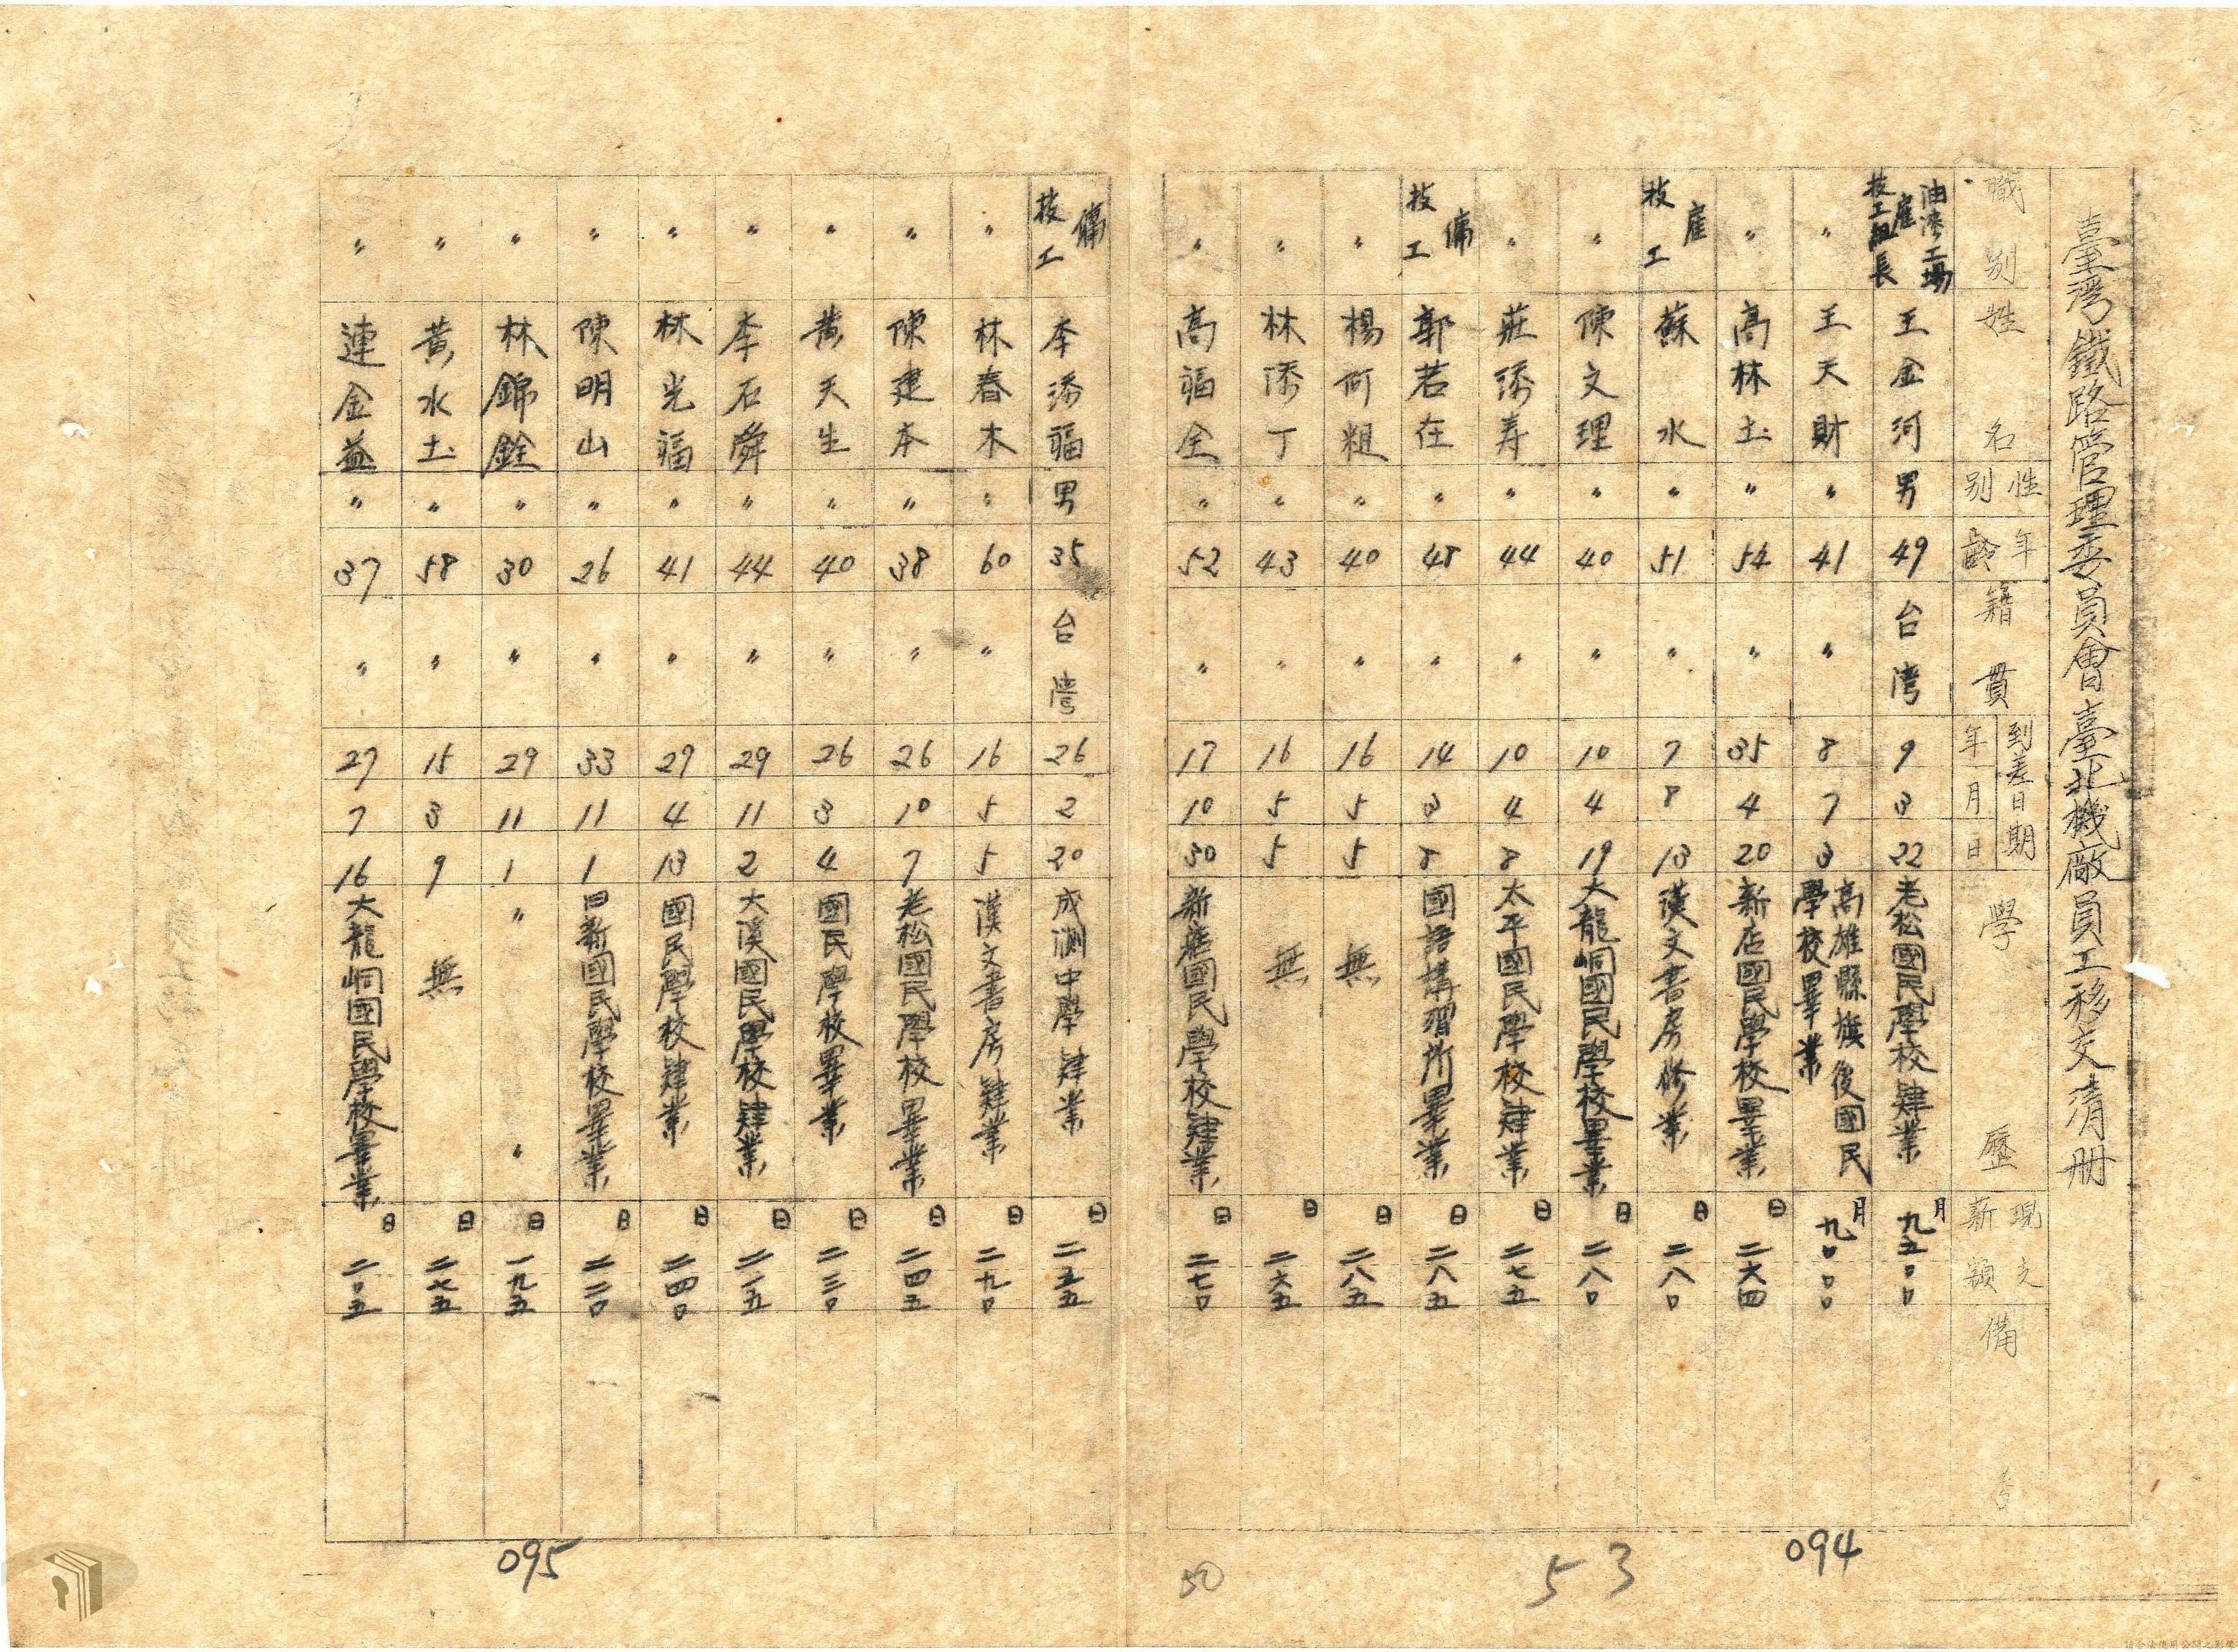 臺灣鐵路管理委員會臺北機廠員工移交清冊
職別 姓名 性別 年齡 籍貫 到差日期 年 月 日 學歷 現支薪額 備考
油漆工場 雇技工組長 王金河 男 49 台灣 9 3 22 老松國民學校肄業 月 九五·〇〇
〃 王天財 〃 41 〃 8 7 3 高雄縣旗後國民學校畢業 月 九〇·〇〇
〃 高林土 〃 54 〃 35 4 20 新店國民學校畢業 日 二六四
雇技工 蘇水 〃 51 〃 7 8 13 漢文書房修業 日 二八〇
〃 陳文理 〃 40 〃 10 4 19 大龍峒國民學校畢業 日 二八〇
〃 莊添寿 〃 44 〃 10 4 8 太平國民學校肄業 日 二七五
傭技工 郭若在 〃 48 〃 14 3 8 國語講習所畢業 日 二八五
〃 楊何粗 〃 40 〃 16 5 5 無 日 二八五
〃 林添丁 〃 43 〃 16 5 5 無 日 二六五
〃 高福全 〃 52 〃 17 10 30 新店國民學校肄業 日 二七〇
094
53
50
傭技工 李添福 男 35 台灣 26 2 20 成淵中學肄業 日 二五五
〃 林春木 〃 60 〃 16 5 5 漢文書房肄業 日 二九〇
〃 陳建本 〃 38 〃 26 10 7 老松國民學校畢業 日 二四五
〃 黄天生 〃 40 〃 26 3 4 國民學校畢業 日 二三〇
〃 李石舜 〃 44 〃 29 11 2 大溪國民學校肄業 日 二一五
〃 林光福 〃 41 〃 29 4 13 國民學校肄業 日 二四〇
〃 陳明山 〃 26 〃 33 11 1 日新國民學校畢業 日 二二〇
〃 林錦銓 〃 30 〃 29 11 1 〃 〃 日 一九五
〃 黄水土 〃 58 〃 15 3 9 無 日 二七五
〃 連金益 〃 37 〃 27 7 16 大龍峒國民學校畢業 日 二〇五
095